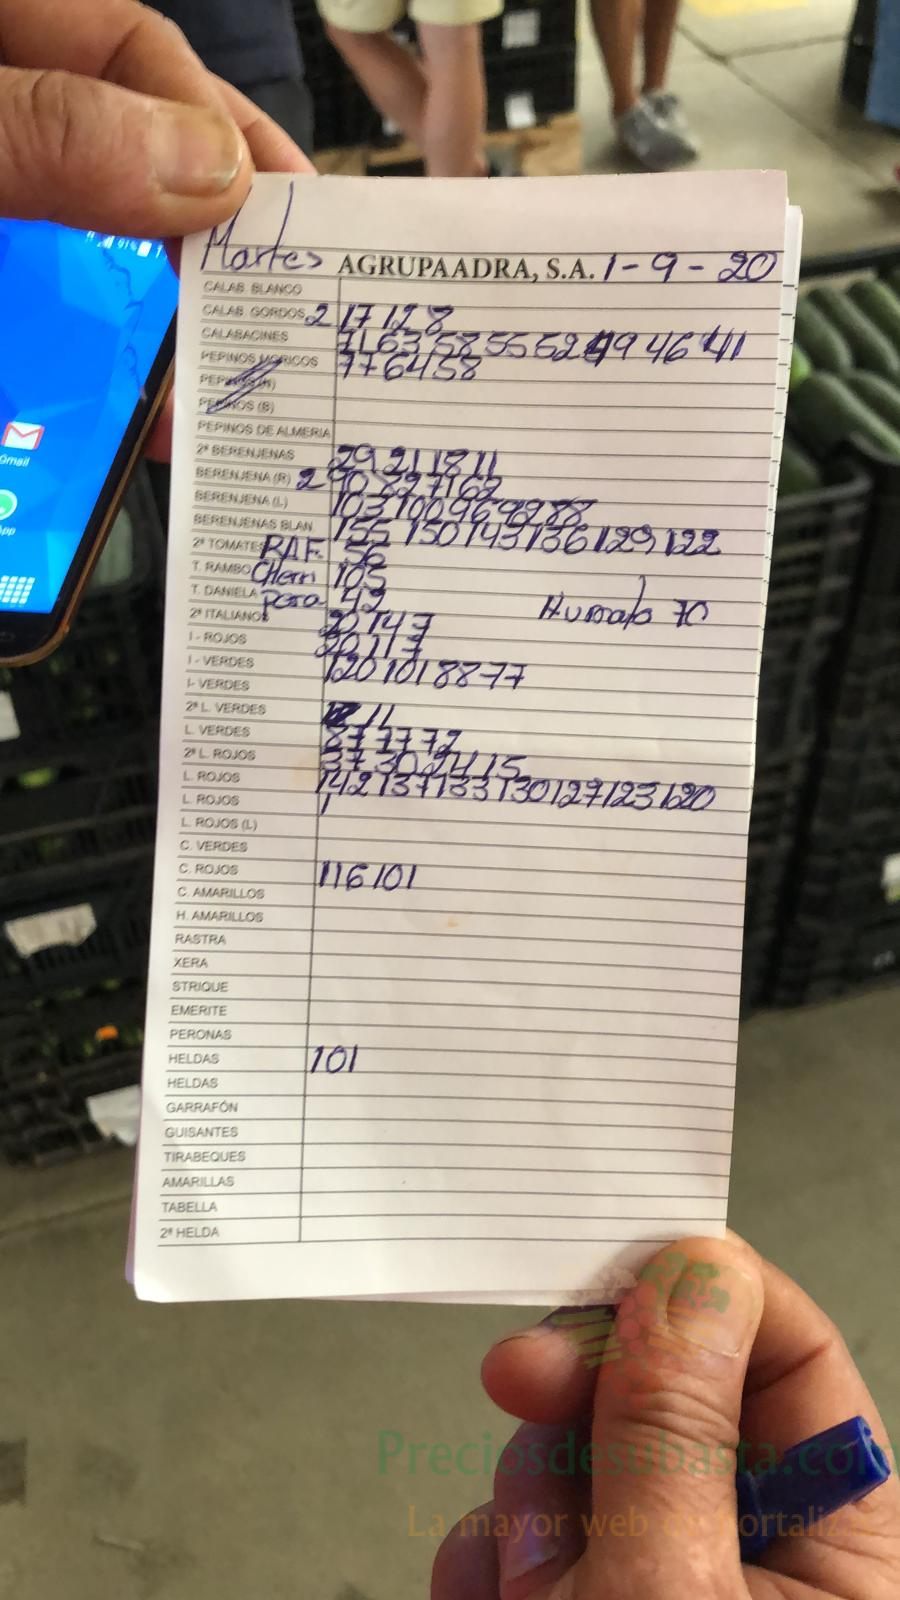 91%
Gmail
Martes AGRUPAADRA, S.A. 1-9-20
CALAB. BLANCO
CALAB. GORDOS 2 17 12 8
CALABACINES 71 63 58 55 52 49 46 41
PEPINOS MORICOS 77 64 58
PEPINOS (N)
PEPINOS (B)
PEPINOS DE ALMERIA
2ª BERENJENAS 29 21 18 11
BERENJENA (R) 2 90 82 71 62
BERENJENA (L) 103 100 96 92 88
BERENJENAS BLAN. 155 150 143 136 129 122
2ª TOMATES RAF 56
T. RAMBO Cherri 105
T. DANIELA pera 42 70
2ª ITALIANOS
I - ROJOS 20 17
I - VERDES 120 101 88 77
I- VERDES
2ª L. VERDES 11
L. VERDES 87 77 72
2ª L. ROJOS 37 30 24 15
L. ROJOS 142 137 133 130 127 123 120
L. ROJOS
L. ROJOS (L)
C. VERDES
C. ROJOS 116 101
C. AMARILLOS
H. AMARILLOS
RASTRA
XERA
STRIQUE
EMERITE
PERONAS
HELDAS 101
HELDAS
GARRAFÓN
GUISANTES
TIRABEQUES
AMARILLAS
TABELLA
2ª HELDA
Preciosdesubasta.com
La mayor web de hortalizas